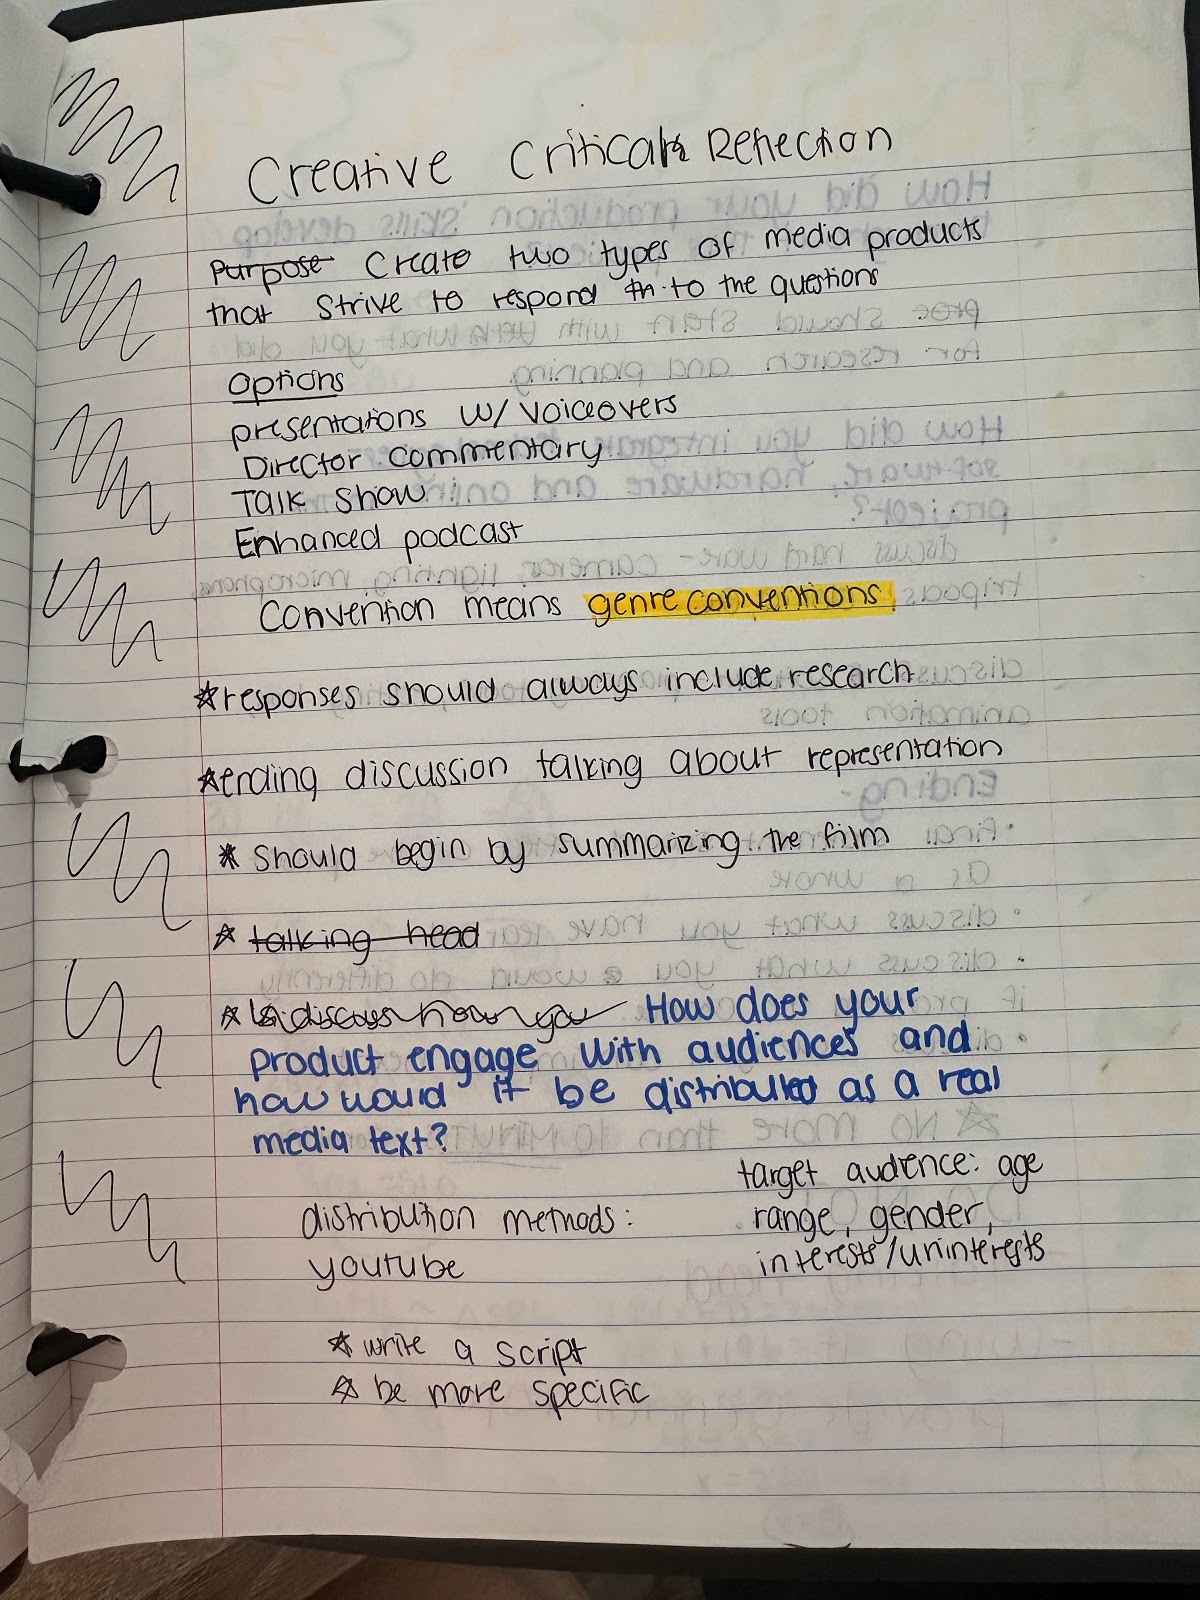 Creative Critical Reflection
Purpose Create two types of media products
that strive to respond to the questions
Options
presentations w/ voiceovers
Director commentary
Talk show
Enhanced podcast
Convention means genre conventions
*responses should always include research
*ending discussion talking about representation
* should begin by summarizing the film
* talking head
* How does your
product engage with audiences and
how would it be distributed as a real
media text?
target audience: age
distribution methods: range, gender,
youtube interests/uninterests
* write a script
* be more specific